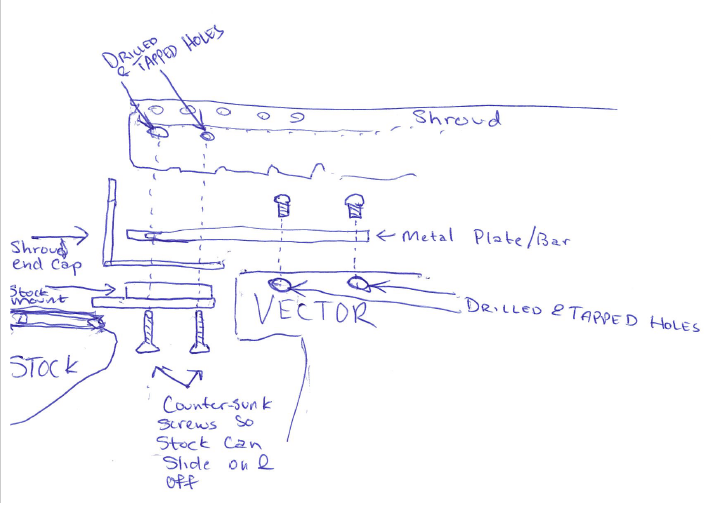 DRILLED
& TAPPED HOLES
Shroud
Metal Plate/Bar
Shroud
end cap
Stock
mount
VECTOR
DRILLED & TAPPED HOLES
STOCK
Counter-sunk
screws so
Stock can
Slide on &
off